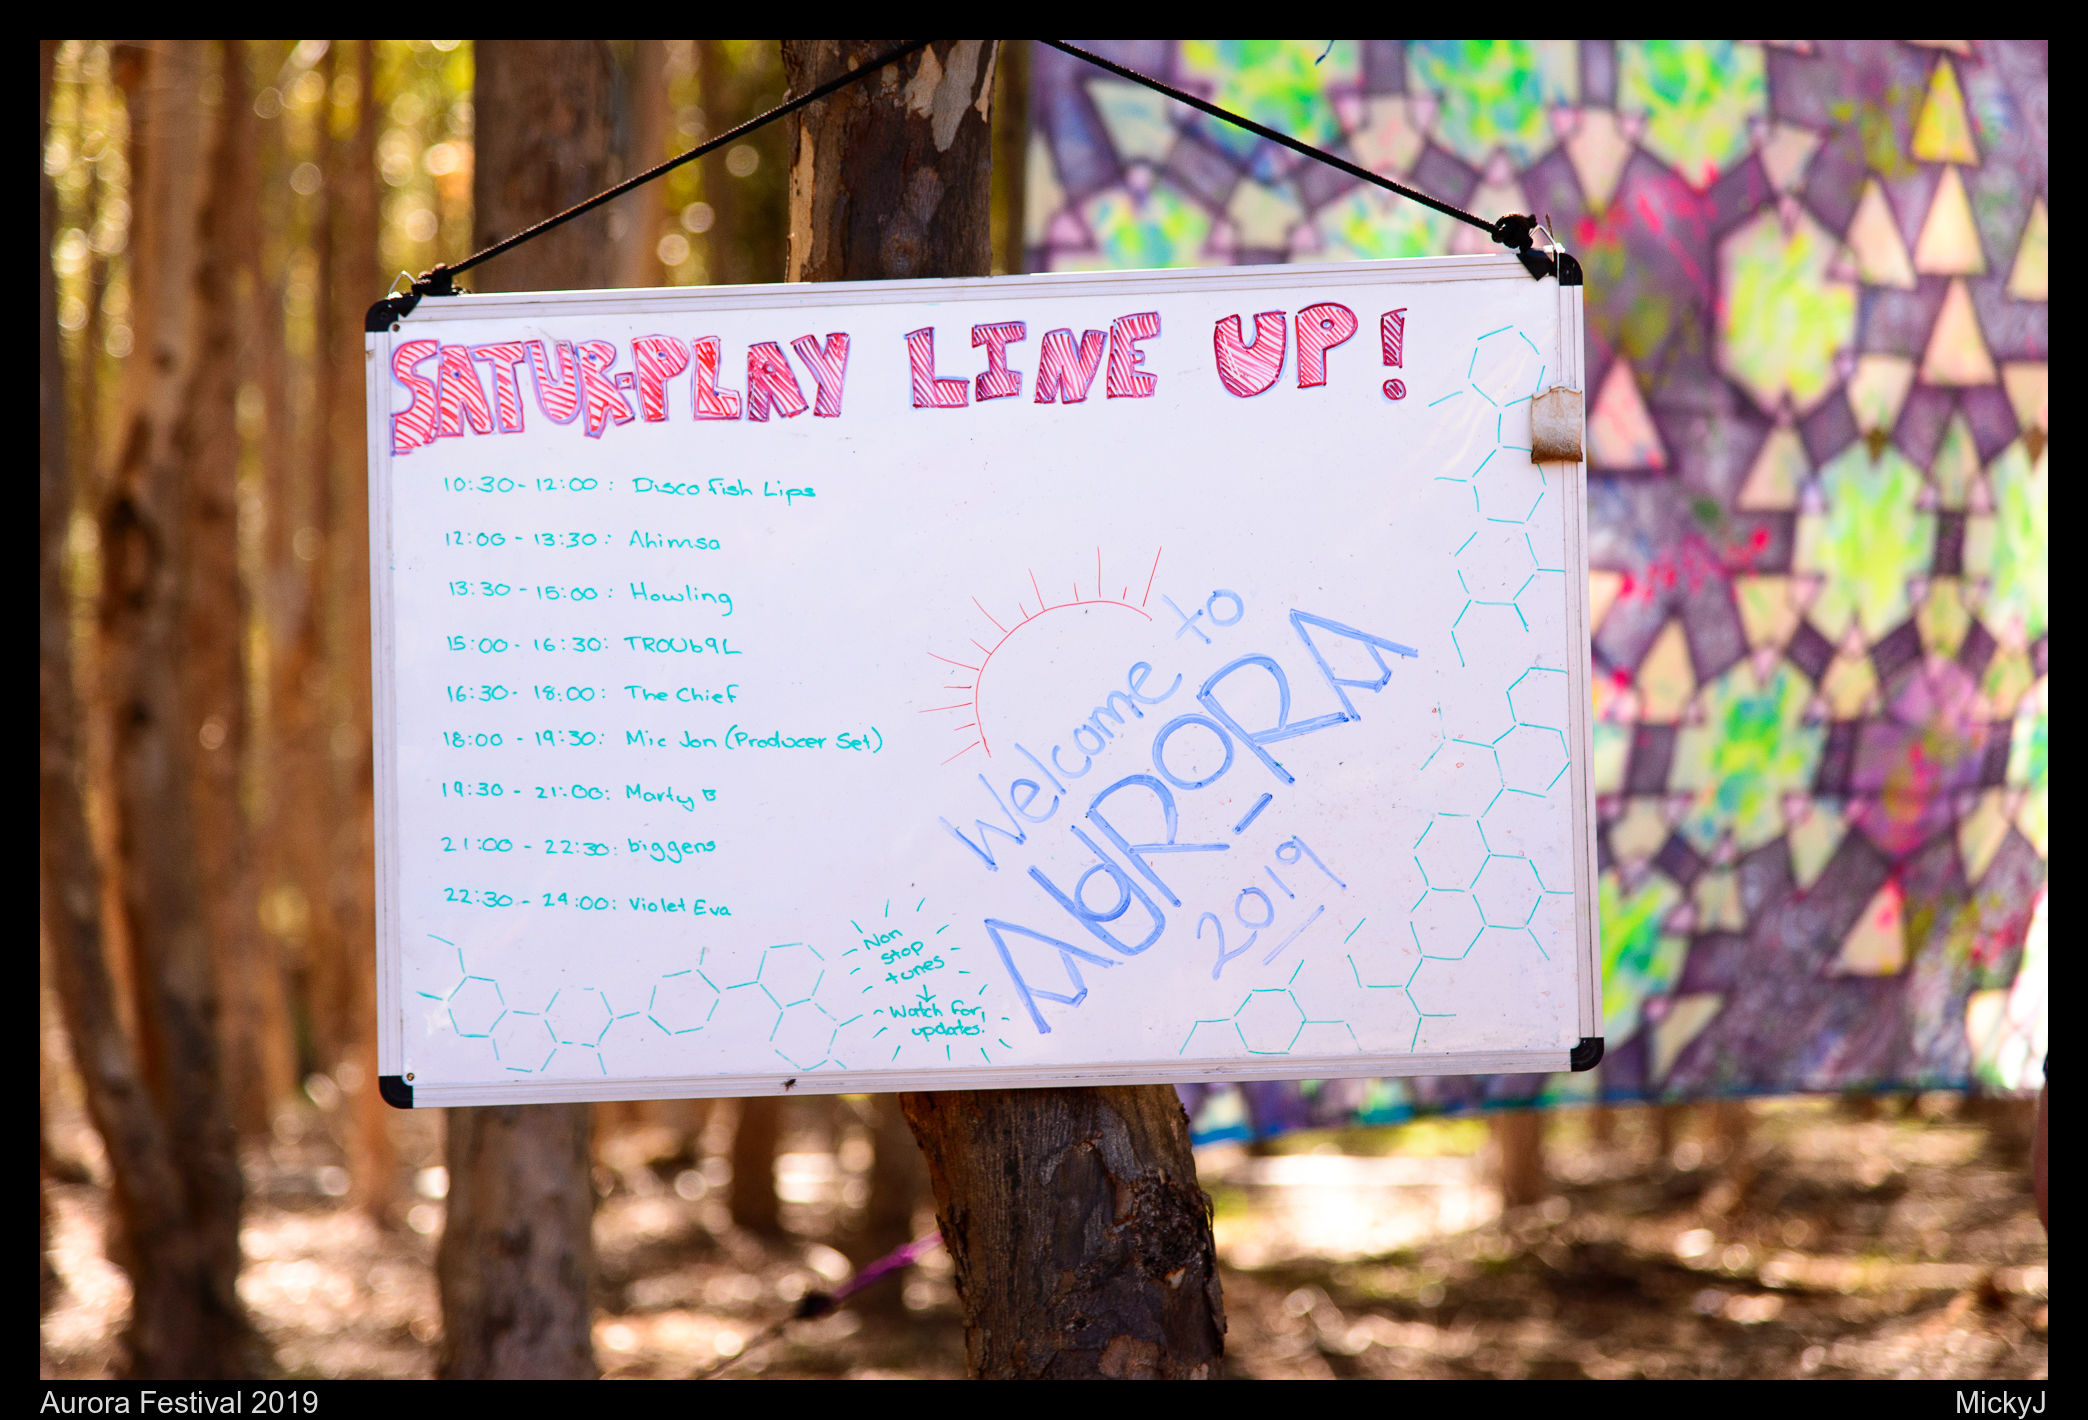 SATUR-PLAY LINE UP!
10:30 - 12:00 : Disco Fish Lips
12:00 - 13:30 : Ahimsa
13:30 - 15:00 : Howling
15:00 - 16:30 : TROUb9L
16:30 - 18:00 : The Chief
18:00 - 19:30 : Mic Jon (Producer Set)
19:30 - 21:00 : Marty B
21:00 - 22:30 : biggens
22:30 - 24:00 : Violet Eva
Welcome to
AURORA
2019
Non
stop
tunes
Watch for,
updates!
Aurora Festival 2019
MickyJ